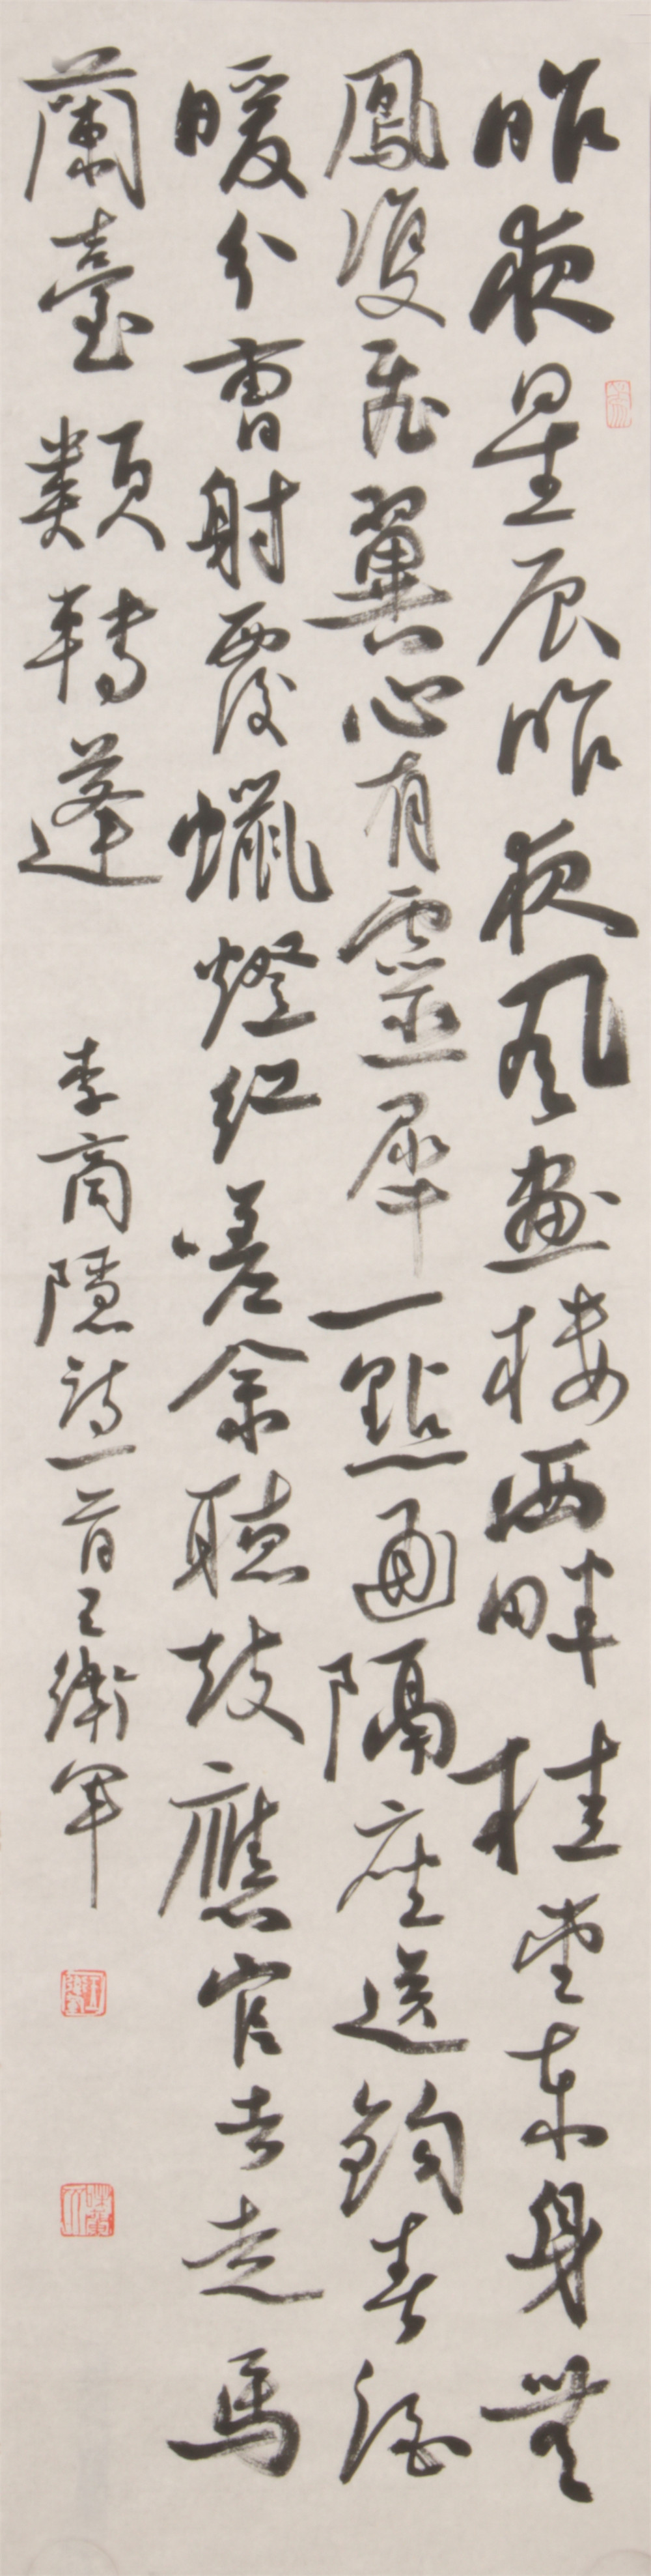 昨夜星辰昨夜風畫樓西畔桂堂東身無
鳳雙飛翼心有靈犀一點通隔座送鉤春酒
暖分曹射覆蠟燈紅嗟余聽鼓應官去走馬
蘭臺類轉蓬 李商隱詩一首王衛軍